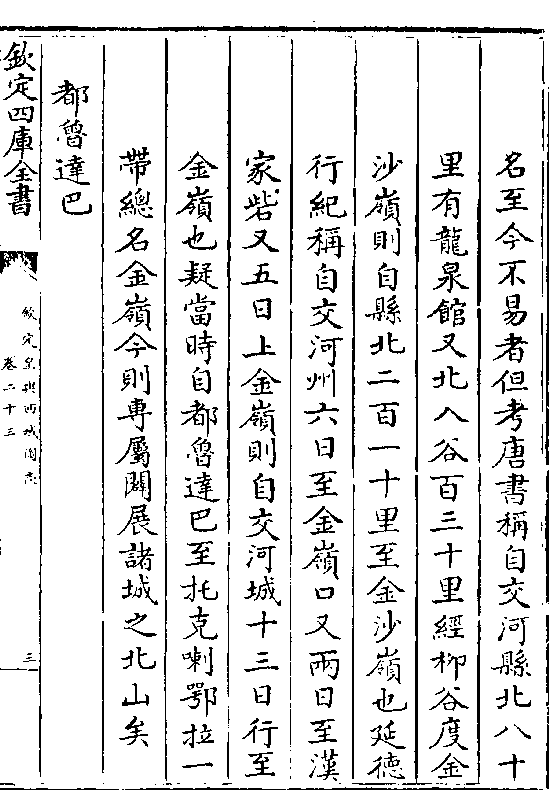 名至今不易者但考唐書稱自交河縣北八十
里有龍泉館又北入谷百三十里經柳谷度金
沙嶺則自縣北二百一十里至金沙嶺也延德
行紀稱自交河州六日至金嶺口又兩日至漢
家砦又五日上金嶺則自交河城十三日行至
金嶺也疑當時自都魯達巴至托克喇鄂拉一
帶總名金嶺今則専屬闢展諸城之北山矣
都魯達巴
欽定四庫全書
欽定皇輿西域圖志
卷二十三
三